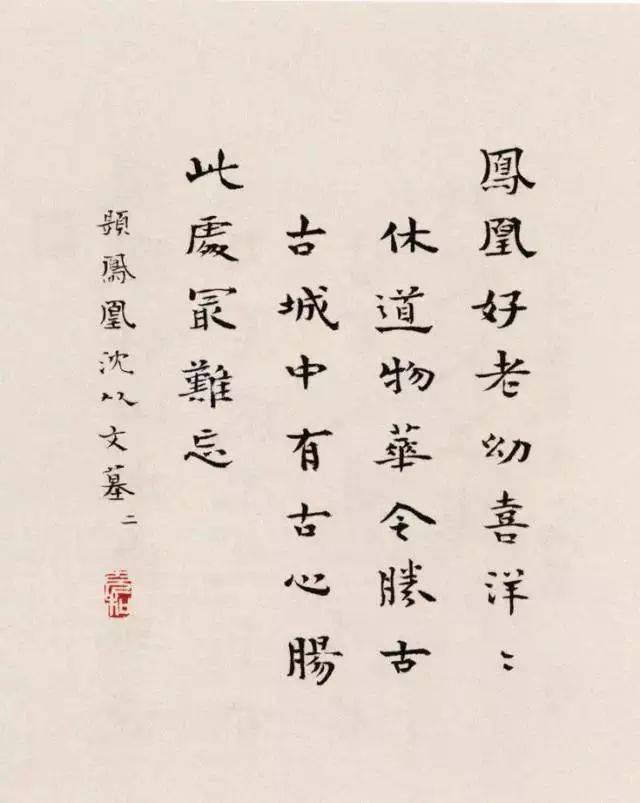 鳳凰好老幼喜洋〻
休道物華今勝古
古城中有古心腸
此處冣難忘
題鳳凰沈从文墓 二